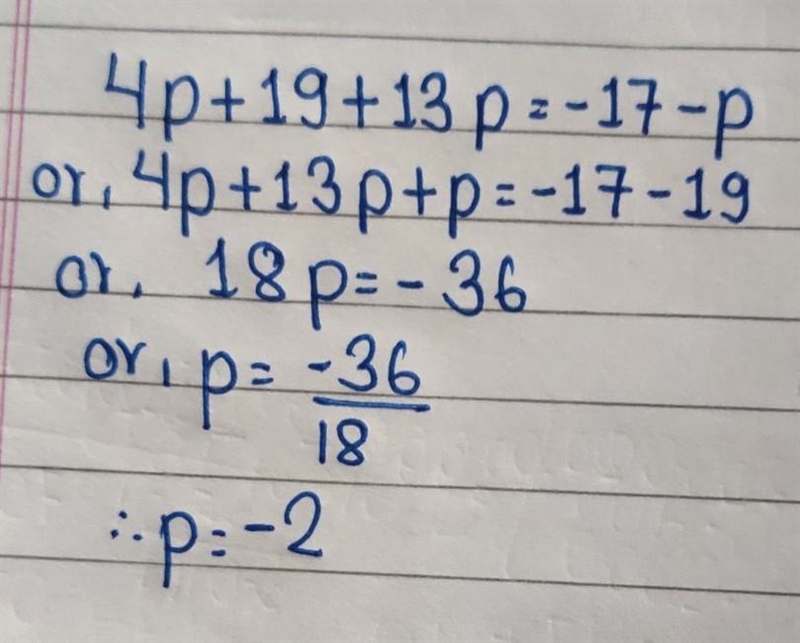 4p+19+13p=-17-p
or, 4p+13p+p=-17-19
or, 18p=-36
or, p=-36/18
∴p=-2